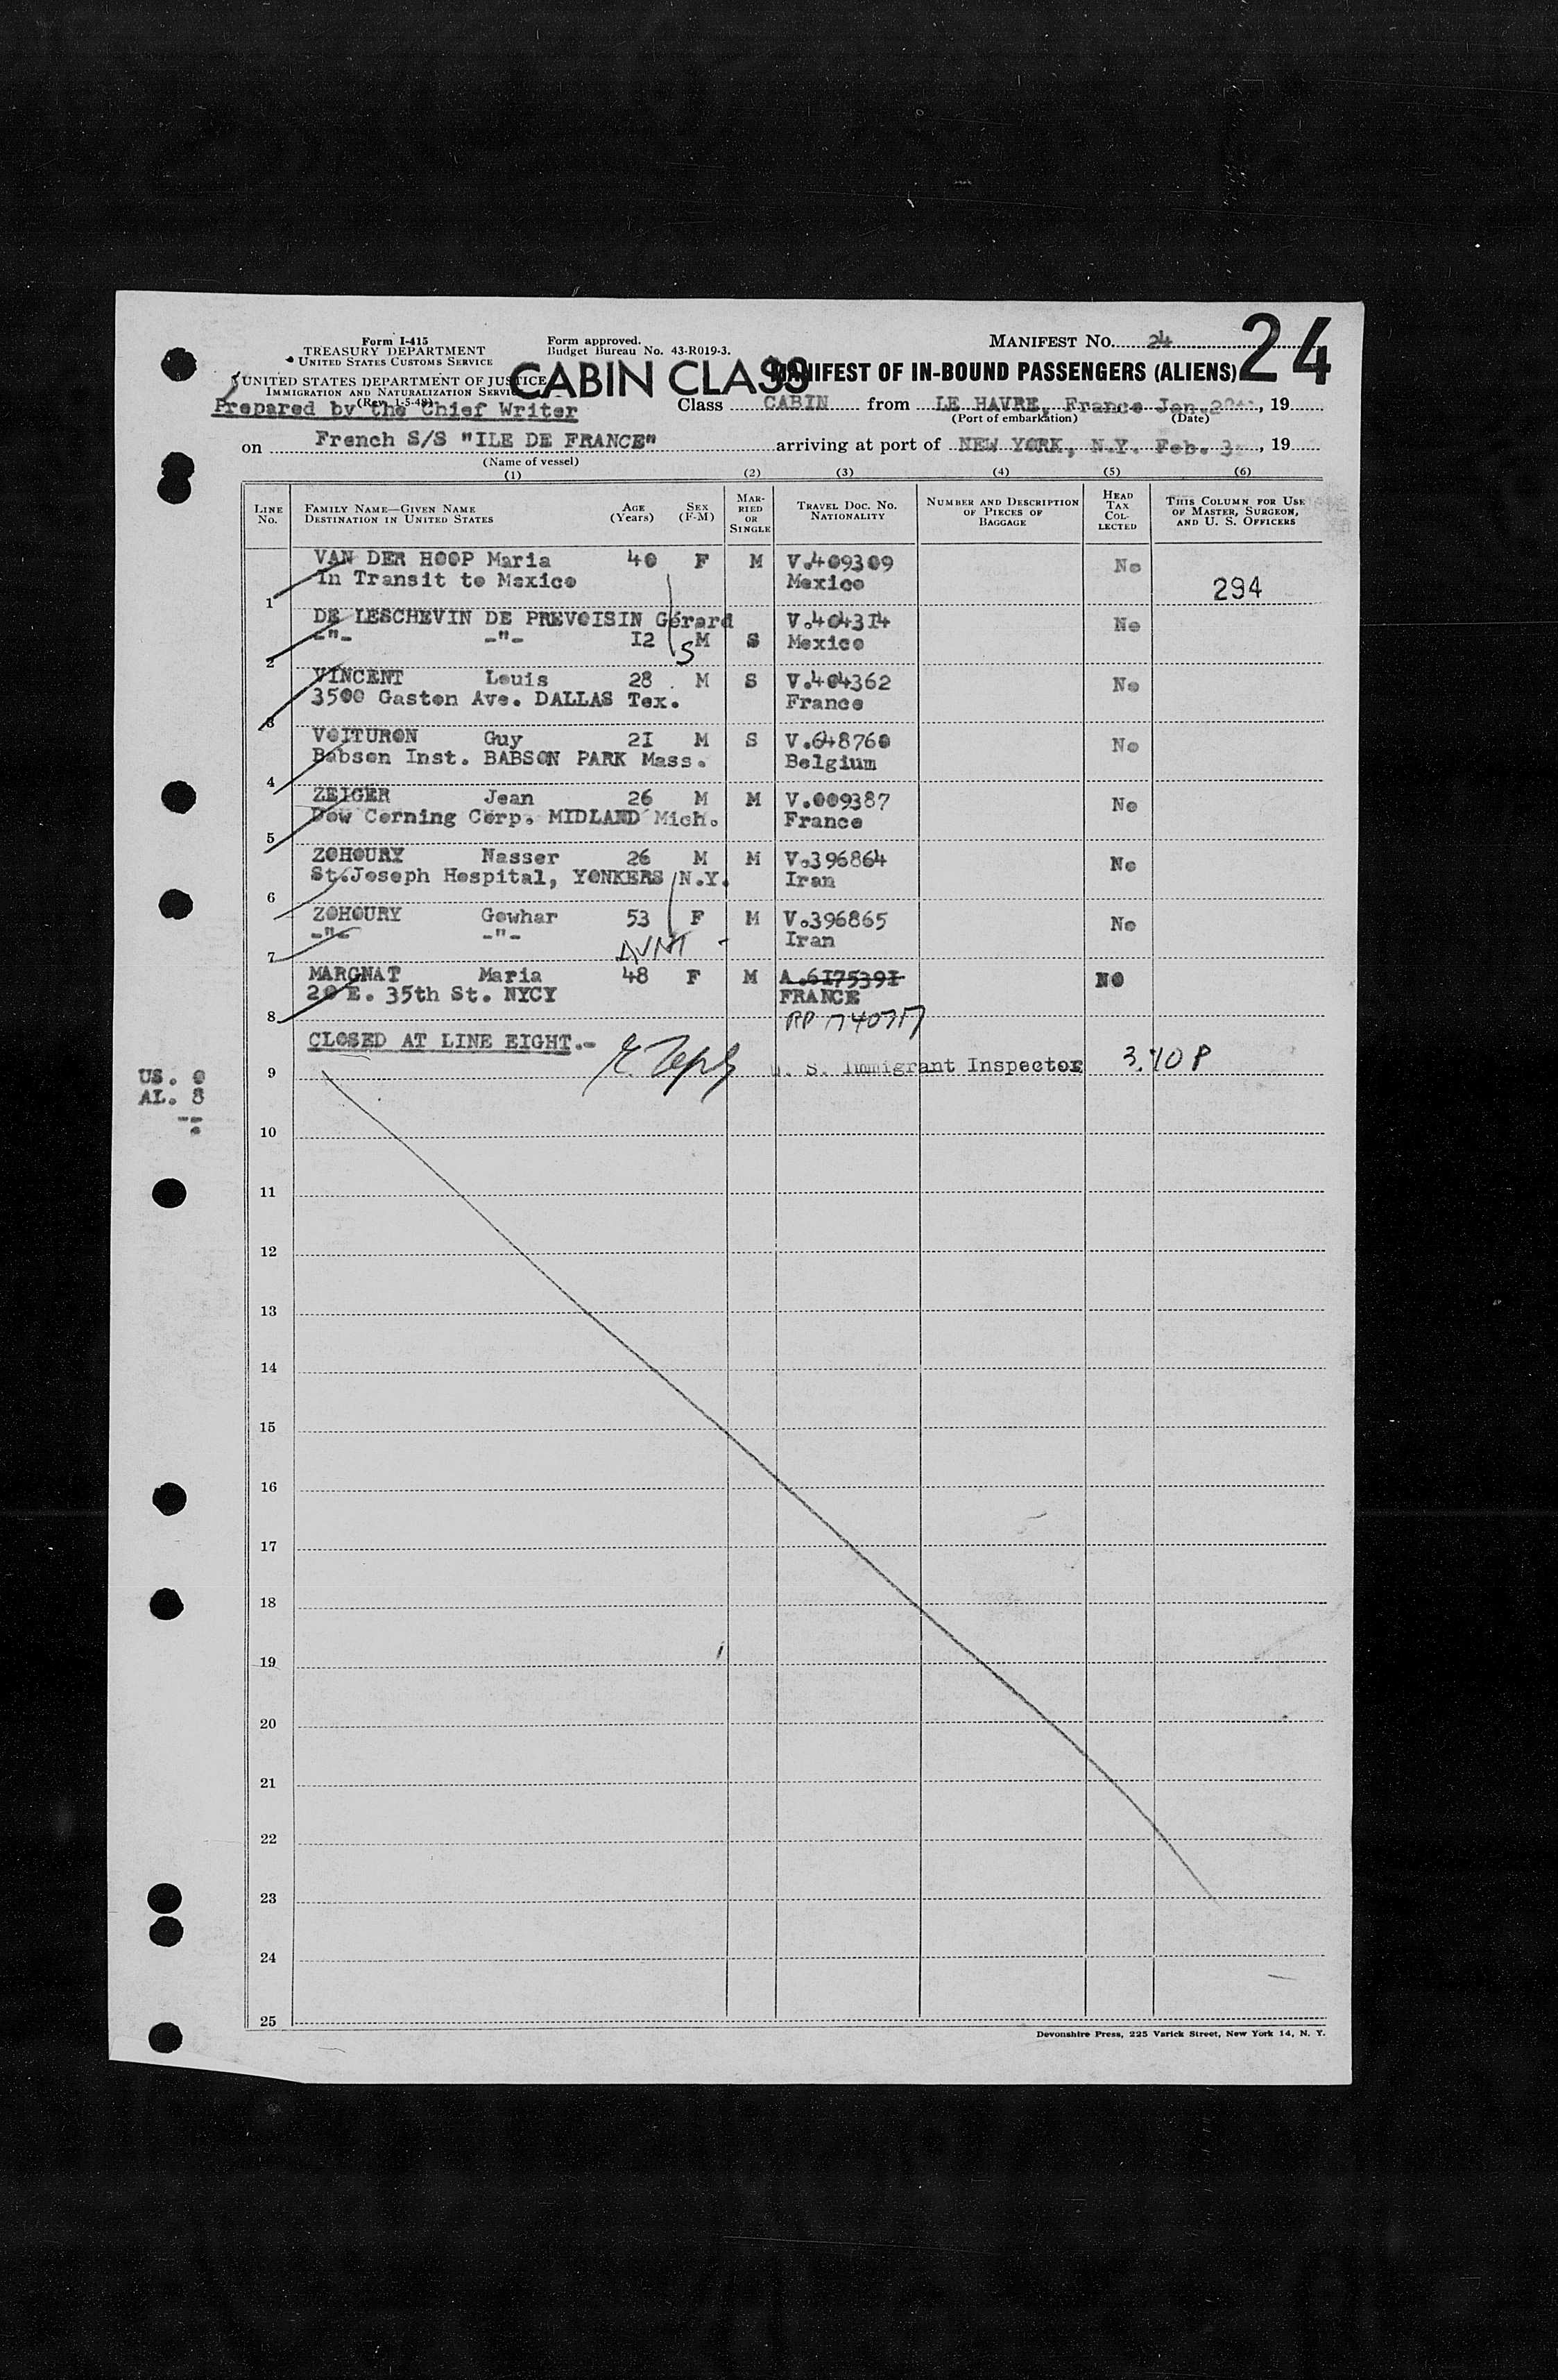 Form I-415
TREASURY DEPARTMENT
UNITED STATES CUSTOMS SERVICE
UNITED STATES DEPARTMENT OF JUSTICE
IMMIGRATION AND NATURALIZATION SERVICE
(Rev. 1-5-48)
Prepared by the Chief Writer
Form approved.
Budget Bureau No. 43-R019-3.
CABIN CLASS
MANIFEST NO. 24
24
MANIFEST OF IN-BOUND PASSENGERS (ALIENS)
Class CABIN from LE HAVRE, France Jan. , 19
(Port of embarkation) (Date)
on French S/S "ILE DE FRANCE" arriving at port of NEW YORK, N.Y. Feb. 3 , 19
(Name of vessel)
(1) (2) (3) (4) (5) (6)
LINE No. FAMILY NAME—GIVEN NAME DESTINATION IN UNITED STATES AGE (Years) SEX (F-M) MARRIED OR SINGLE TRAVEL DOC. NO. NATIONALITY NUMBER AND DESCRIPTION OF PIECES OF BAGGAGE HEAD TAX COLLECTED THIS COLUMN FOR USE OF MASTER, SURGEON, AND U. S. OFFICERS
VAN DER HOOP Maria 40 F M V.409309 No
1 In Transit to Mexico Mexico 294
DE LESCHEVIN DE PREVOISIN Gérard V.404314 No
2 -"- -"- 12 S M S Mexico
VINCENT Louis 28 M S V.404362 No
3 3500 Gaston Ave. DALLAS Tex. France
VOITURON Guy 21 M S V.648760 No
4 Babson Inst. BABSON PARK Mass. Belgium
ZEIGER Jean 26 M M V.009387 No
5 Dow Corning Corp. MIDLAND Mich. France
ZOHOURY Nasser 26 M M V.396864 No
6 St.Joseph Hospital, YONKERS N.Y. Iran
ZOHOURY Gowhar 53 F M V.396865 No
7 -"- -"- Iran
MARGNAT Maria 48 F M A.6175391 NO
8 20 E. 35th St. NYCY FRANCE
RP 1740717
CLOSED AT LINE EIGHT.-
9 U. S. Immigrant Inspector 3.10 P
US. 0
AL. 8
10
11
12
13
14
15
16
17
18
19
20
21
22
23
24
25
Devonshire Press, 225 Varick Street, New York 14, N. Y.